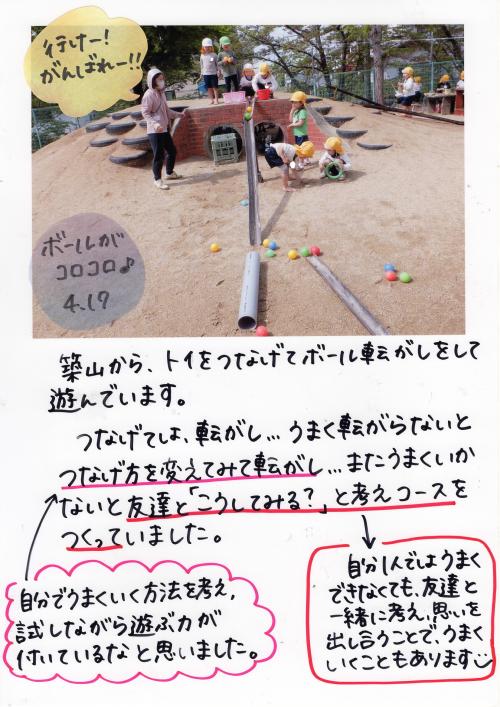 行けー!
がんばれー!!
ボールが
コロコロ♪
4.17
築山から、トイをつなげてボール転がしをして
遊んでいます。
つなげては、転がし…うまく転がらないと
つなげ方を変えてみて転がし…またうまくいか
ないと友達と「こうしてみる?」と考えコースを
つくっていました。
自分でうまくいく方法を考え、
試しながら遊ぶ力が
付いているなと思いました。
自分1人ではうまく
できなくても、友達と
一緒に考え、思いを
出し合うことで、うまく
いくこともあります